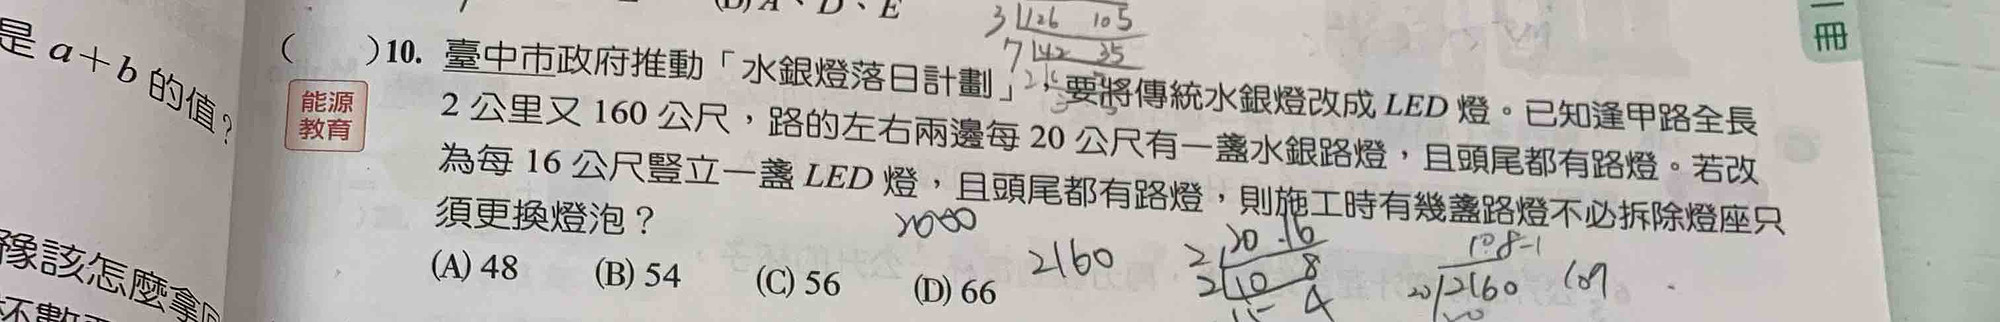 (D) A、D、E
3 126 105
7 42 35
一冊
是 a+b 的值？
( )10. 臺中市政府推動「水銀燈落日計劃」，要將傳統水銀燈改成 LED 燈。已知逢甲路全長
能源
教育
2 公里又 160 公尺，路的左右兩邊每 20 公尺有一盞水銀路燈，且頭尾都有路燈。若改
為每 16 公尺豎立一盞 LED 燈，且頭尾都有路燈，則施工時有幾盞路燈不必拆除燈座只
須更換燈泡？
(A) 48 (B) 54 (C) 56 (D) 66
2000
2160
2 20 16
2 10 8
4
108
20 2160 109
豫該怎麼拿